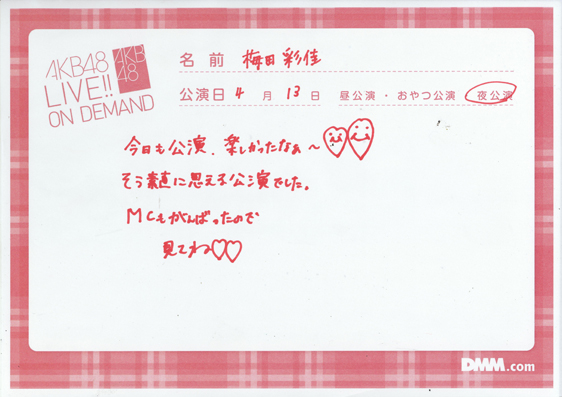 AKB48
LIVE!!
ON DEMAND
AKB
48
名前 梅田彩佳
公演日 4月13日 昼公演・おやつ公演 夜公演
今日も公演、楽しかったなぁ〜
そう素直に思える公演でした。
MCもがんばったので
見てね♡♡
DMM.com